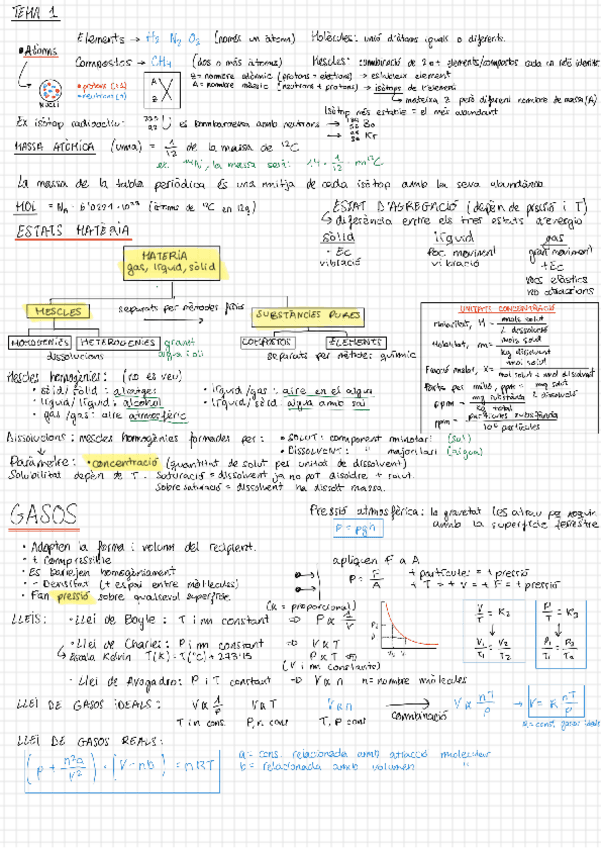 TEMA 1
Elements → H₂ N₂ O₂ (només un àtom) Molècules: unió d'àtoms iguals o diferents.
• Àtoms
Compostos → CH₄ (dos o més àtoms) Mescles: combinació de 2 o + elements/compostos cada un
• protons (+)
• neutrons
NUCLI
A
Z
X
Z = nombre atòmic (protons = electrons) → estableix element
A = nombre màssic (neutrons + protons) → isòtops de l'element
mateixa Z però diferent nombre de massa (A)
Isòtop més estable = el més abundant
Ex isòtop radioactiu: U es bombardeja amb neutrons → Ba
→ Kr
MASSA ATÒMICA (uma) = 1/12 de la massa de ¹²C
ex. ¹⁴N, la massa serà: 14 · 1/12 · m ¹²C
La massa de la tabla periòdica és una mitja de cada isòtop amb la seva abundància.
MOL = Nₐ = 6'0221 · 10²³ (àtoms de ¹²C en 12g)
ESTAT D'AGREGACIÓ (depèn de pressió i T)
↳ diferència entre els tres estats d'energia
ESTATS MATÈRIA
sòlid líquid gas
- Ec poc moviment gran moviment
vibració vibració + Ec
xocs elàstics
no atraccions
MATÈRIA
gas, líquid, sòlid
MESCLES
separats per mètodes físics
SUBSTÀNCIES PURES
HOMOGÈNIES HETEROGÈNIES granit
dissolucions aigua i oli
COMPOSTOS ELEMENTS
separats per mètode químic
UNITATS CONCENTRACIÓ
Molaritat, M = mols solut / L dissolució
Molalitat, m = mols solut / kg dissolvent
Fracció molar, X = mol solut / mol solut + mol dissolvent
Parts per milió, ppm = mg solut / L dissolució
ppm = mg substància / kg total
ppm = partícules substància / 10⁶ partícules
Mescles homogènies: (no es veu)
• sòlid/sòlid: aleatge • líquid/gas: aire en el aigua
• líquid/líquid: alcohol • líquid/sòlid aigua amb sal
• gas/gas: aire atmosfèric
Dissolucions: mescles homogènies formades per: • SOLUT: component minoritari (sal)
• DISSOLVENT: " majoritari (aigua)
Paràmetre: • concentració (quantitat de solut per unitat de dissolvent)
Solubilitat depèn de T. Saturació = dissolvent ja no pot dissoldre + solut.
Sobresaturació = dissolvent ha dissolt massa.
GASOS
Pressió atmosfèrica: la gravetat les atrau
amb la superfície terrestre
P = ρgh
• Adopten la forma i volum del recipient.
• + compressible
• Es barrejen homogèniament
• - Densitat (+ espai entre molècules)
• Fan pressió sobre qualsevol superfície.
apliquen F a A
P = F/A
+ partícules = + pressió
+ T = + v = + F = + pressió
(K = proporcional)
LLEIS: • Llei de Boyle: T i nm constant ⇒ P ∝ 1/V
• Llei de Charles: P i nm constant ⇒ V ∝ T
↳ Escala Kelvin T(K) = T(°C) + 273'15 P ∝ T
(V i nm constants)
• Llei de Avogadro: P i T constant ⇒ V ∝ n n = nombre mòlecules
P₂
V₁ V₂
V/T = K₂
V₁/T₁ = V₂/T₂
P/T = K₃
P₁/T₁ = P₂/T₂
LLEI DE GASOS IDEALS: V ∝ 1/P V ∝ T V ∝ n → combinació V ∝ nT/P → V = R nT/P
T i n cons. P, n cons T, P cons
LLEI DE GASOS REALS:
(P + n²a/V²) · (V - nb) = nRT
a = cons. relacionada amb atracció molecular
b = relacionada amb volumen "